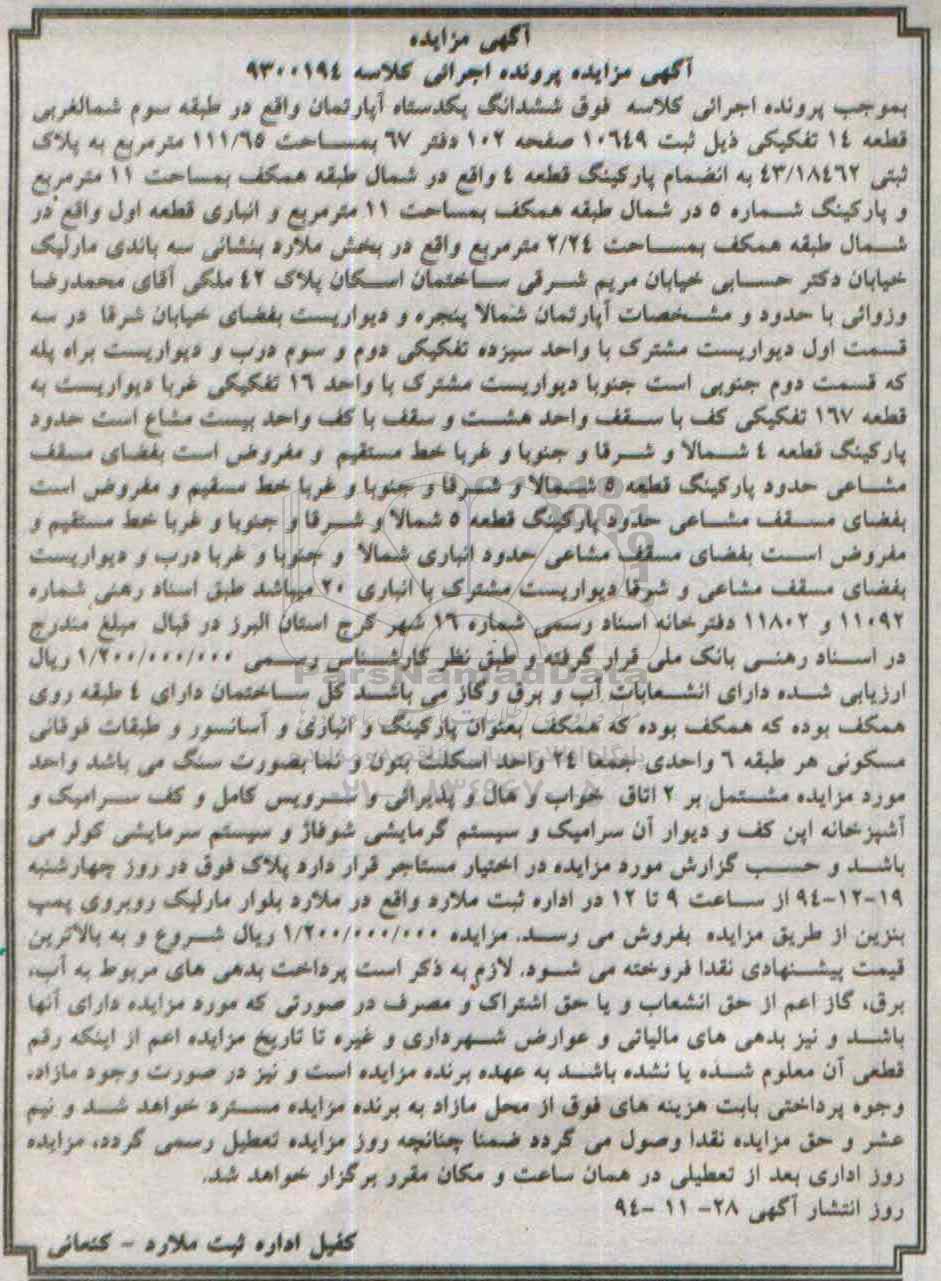 آگهی مزایده
آگهی مزایده پرونده اجرائی کلاسه ۹۳۰۰۱۹٤
بموجب پرونده اجرائی کلاسه فوق ششدانگ یکدستاه آپارتمان واقع در طبقه سوم شمالغربی
قطعه ۱٤ تفکیکی ذیل ثبت ۱۰٦٤۹ صفحه ۱۰۲ دفتر ٦۷ بمساحت ۱۱۱/٦٥ مترمربع به پلاک
ثبتی ٤۳/۱۸٤٦۲ به انضمام پارکینگ قطعه ٤ واقع در شمال طبقه همکف بمساحت ۱۱ مترمربع
و پارکینگ شماره ٥ در شمال طبقه همکف بمساحت ۱۱ مترمربع و انباری قطعه اول واقع در
شمال طبقه همکف بمساحت ۲/۲٤ مترمربع واقع در بخش ملارد بنشانی سه باندی مارلیک
خیابان دکتر حسابی خیابان مریم شرقی ساختمان اسکان پلاک ٤۲ ملکی آقای محمدرضا
وزوائی با حدود و مشخصات آپارتمان شمالا پنجره و دیواریست بفضای خیابان شرقا در سه
قسمت اول دیواریست مشترک با واحد سیزده تفکیکی دوم و سوم درب و دیواریست براه پله
که قسمت دوم جنوبی است جنوبا دیواریست مشترک با واحد ۱٦ تفکیکی غربا دیواریست به
قطعه ۱٦۷ تفکیکی کف با سقف واحد هشت و سقف با کف واحد بیست مشاع است حدود
پارکینگ قطعه ٤ شمالا و شرقا و جنوبا و غربا خط مستقیم و مفروض است بفضای مسقف
مشاعی حدود پارکینگ قطعه ٥ شمالا و شرقا و جنوبا و غربا خط مسقیم و مفروض است
بفضای مسقف مشاعی حدود پارکینگ قطعه ٥ شمالا و شرقا و جنوبا و غربا خط مستقیم و
مفروض است بفضای مسقف مشاعی حدود انباری شمالا و جنوبا و غربا درب و دیواریست
بفضای مسقف مشاعی و شرقا دیواریست مشترک با انباری ۲۰ میباشد طبق اسناد رهنی شماره
۱۱۰۹۲ و ۱۱۸۰۲ دفترخانه اسناد رسمی شماره ۱٦ شهر کرج استان البرز در قبال مبلغ مندرج
در اسناد رهنی بانک ملی قرار گرفته و طبق نظر کارشناس رسمی ۱/۲۰۰/۰۰۰/۰۰۰ ریال
ارزیابی شده دارای انشعابات آب و برق وگاز می باشد کل ساختمان دارای ٤ طبقه روی
همکف بوده که همکف بوده که همکف بعنوان پارکینگ و انباری و آسانسور و طبقات فوقانی
مسکونی هر طبقه ٦ واحدی جمعا ۲٤ واحد اسکلت بتون و نما بصورت سنگ می باشد واحد
مورد مزایده مشتمل بر ۲ اتاق خواب و هال و پذیرائی و سرویس کامل و کف سرامیک و
آشپزخانه اپن کف و دیوار آن سرامیک و سیستم گرمایشی شوفاژ و سیستم سرمایشی کولر می
باشد و حسب گزارش مورد مزایده در اختیار مستاجر قرار دارد پلاک فوق در روز چهارشنبه
۱۹-۱۲-۹٤ از ساعت ۹ تا ۱۲ در اداره ثبت ملارد واقع در ملارد بلوار مارلیک روبروی پمپ
بنزین از طریق مزایده بفروش می رسد. مزایده ۱/۲۰۰/۰۰۰/۰۰۰ ریال شروع و به بالاترین
قیمت پیشنهادی نقدا فروخته می شود. لازم به ذکر است پرداخت بدهی های مربوط به آب،
برق، گاز اعم از حق انشعاب و یا حق اشتراک و مصرف در صورتی که مورد مزایده دارای آنها
باشد و نیز بدهی های مالیاتی و عوارض شهرداری و غیره تا تاریخ مزایده اعم از اینکه رقم
قطعی آن معلوم شده یا نشده باشد به عهده برنده مزایده است و نیز در صورت وجود مازاد،
وجوه پرداختی بابت هزینه های فوق از محل مازاد به برنده مزایده مسترد خواهد شد و نیم
عشر و حق مزایده نقدا وصول می گردد ضمنا چنانچه روز مزایده تعطیل رسمی گردد، مزایده
روز اداری بعد از تعطیلی در همان ساعت و مکان مقرر برگزار خواهد شد.
روز انتشار آگهی ۲۸- ۱۱ -۹٤
کفیل اداره ثبت ملارد - کنعانی
ParsNamadData